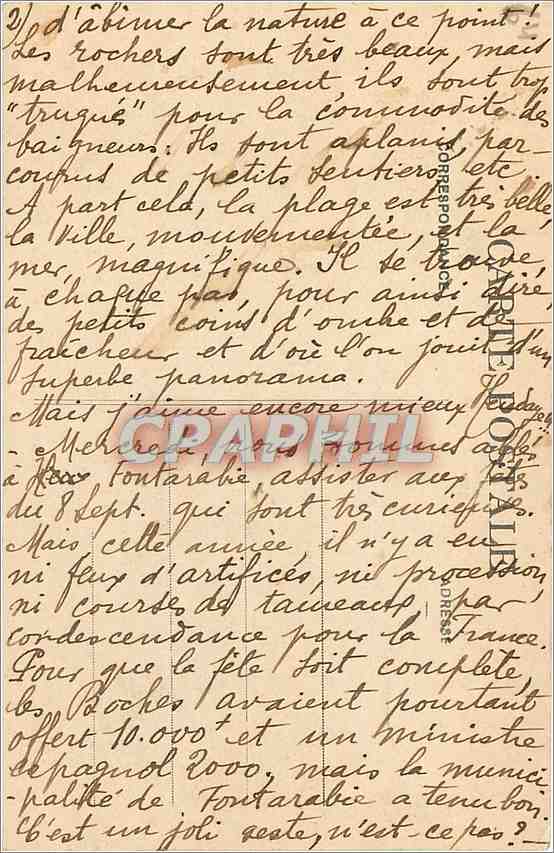 2) d'âbimer la nature à ce point!
Les rochers sont très beaux mais
malheureusement, ils sont trop
"truqués" pour la commodité des
baigneurs: Ils sont aplanis, par-
courus de petits sentiers, etc
A part cela, la plage est très belle,
la ville, mouvementée, et la
mer, magnifique. Il se trouve
à chaque pas, pour ainsi dire
des petits coins d'ombre et de
fraîcheur et d'où l'on jouit d'un
superbe panorama.
Mais j'aime encore mieux Hendaye
- Mercredi, nous sommes allés
à Fontarabie, assister aux fêtes
du 8 Sept. qui sont très curieuses.
Mais, cette année, il n'y a eu
ni feux d'artifices, ni procession,
ni courses de taureaux, par
condescendance pour la France.
Pour que la fête soit complète,
les Boches avaient pourtant
offert 10.000 f et un ministre
espagnol 2000, mais la munici
-palité de Fontarabie a tenu bon.
C'est un joli geste, n'est-ce pas? -
CARTE POSTALE
CORRESPONDANCE
ADRESSE
CPAPHIL